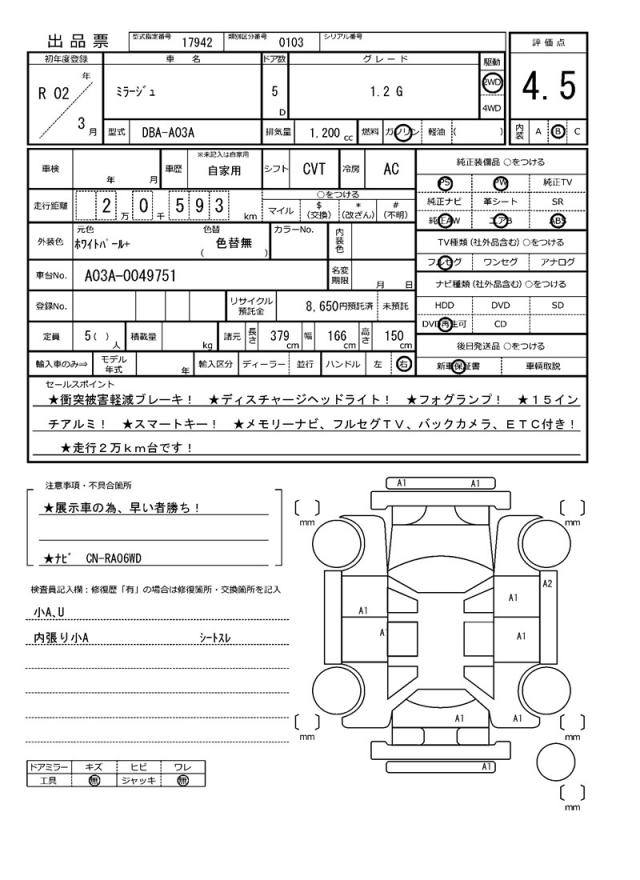 出品票 型式指定番号 17942 類別区分番号 0103 シリアル番号
初年度登録 車名 ドア数 グレード 駆動 評価点
R 02 年 3 月 ミラージュ 5 D 1.2 G 2WD 4WD 4.5
型式 DBA-A03A 排気量 1.200 cc 燃料 ガソリン 軽油 ( ) 内装 A B C
車検 年 月 車歴 ※未記入は自家用 自家用 シフト CVT 冷房 AC 純正装備品 ○をつける
PS PW 純正TV
走行距離 2 万 0 千 5 9 3 km ○をつける
マイル $ (交換) * (改ざん) # (不明)
純正ナビ 革シート SR
純正AW エアB ABS
外装色 元色 ホワイトパール+ 色替 ( 色替無 ) カラーNo. 内装色
TV種類 (社外品含む) ○をつける
フルセグ ワンセグ アナログ
車台No. A03A-0049751 名変期限 月 日
ナビ種類 (社外品含む) ○をつける
登録No. リサイクル預託金 8,650円預託済 未預託
HDD DVD SD
DVD再生可 CD
定員 5 ( ) 人 積載量 kg 諸元 長さ 379 cm 幅 166 cm 高さ 150 cm
後日発送品 ○をつける
輸入車のみ⇒ モデル年式 年 輸入区分 ディーラー 並行 ハンドル 左 右
新車保証書 車輌取説
セールスポイント
★衝突被害軽減ブレーキ! ★ディスチャージヘッドライト! ★フォグランプ! ★15イン
チアルミ! ★スマートキー! ★メモリーナビ、フルセグTV、バックカメラ、ETC付き!
★走行2万km台です!
注意事項・不具合箇所
★展示車の為、早い者勝ち!
★ナビ CN-RA06WD
検査員記入欄：修復歴「有」の場合は修復箇所・交換箇所を記入
小A,U
内張り小A シートスレ
ドアミラー キズ ヒビ ワレ
工具 無 ジャッキ 無
A1 A1
[ ] mm [ ] mm
A2
A1
A1
A A1
A1 A1
[ ] mm [ ] mm
A1
[ ] mm